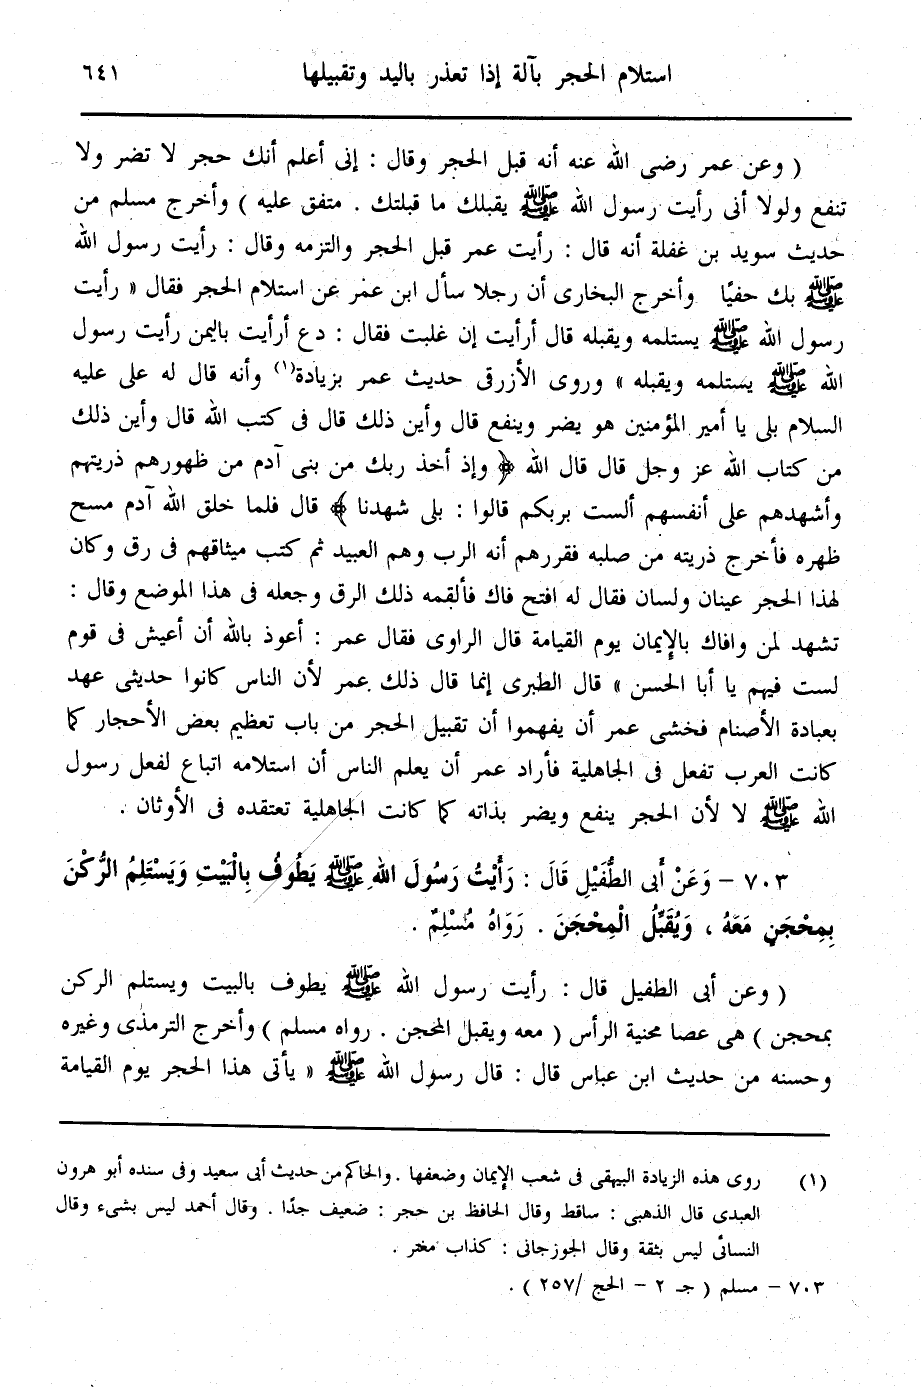 استلام الحجر بآلة إذا تعذر باليد وتقبيلها ٦٤١
( وعن عمر رضى الله عنه أنه قبل الحجر وقال : إنى أعلم أنك حجر لا تضر ولا
تنفع ولولا أنى رأيت رسول الله ﷺ يقبلك ما قبلتك . متفق عليه ) وأخرج مسلم من
حديث سويد بن غفلة أنه قال : رأيت عمر قبل الحجر والتزمه وقال : رأيت رسول الله
ﷺ بك حفيًا وأخرج البخارى أن رجلا سأل ابن عمر عن استلام الحجر فقال « رأيت
رسول الله ﷺ يستلمه ويقبله قال أرأيت إن غلبت فقال : دع أرأيت باليمن رأيت رسول
الله ﷺ يستلمه ويقبله » وروى الأزرقى حديث عمر بزيادة(١) وأنه قال له على عليه
السلام بلى يا أمير المؤمنين هو يضر وينفع قال وأين ذلك قال فى كتب الله قال وأين ذلك
من كتاب الله عز وجل قال قال الله ﴿ وإذ أخذ ربك من بنى آدم من ظهورهم ذريتهم
وأشهدهم على أنفسهم ألست بربكم قالوا : بلى شهدنا ﴾ قال فلما خلق الله آدم مسح
ظهره فأخرج ذريته من صلبه فقررهم أنه الرب وهم العبيد ثم كتب ميثاقهم فى رق وكان
لهذا الحجر عينان ولسان فقال له افتح فاك فألقمه ذلك الرق وجعله فى هذا الموضع وقال :
تشهد لمن وافاك بالإيمان يوم القيامة قال الراوى فقال عمر : أعوذ بالله أن أعيش فى قوم
لست فيهم يا أبا الحسن » قال الطبرى إنما قال ذلك عمر لأن الناس كانوا حديثى عهد
بعبادة الأصنام فخشى عمر أن يفهموا أن تقبيل الحجر من باب تعظيم بعض الأحجار كما
كانت العرب تفعل فى الجاهلية فأراد عمر أن يعلم الناس أن استلامه اتباع لفعل رسول
الله ﷺ لا لأن الحجر ينفع ويضر بذاته كما كانت الجاهلية تعتقده فى الأوثان .
٧٠٣ – وَعَنْ أَبى الطُّفَيْلِ قَالَ : رَأَيْتُ رَسُولَ اللهِ ﷺ يَطُوفُ بِالْبَيْتِ وَيَسْتَلِمُ الرُّكْنَ
بِمِحْجَنٍ مَعَهُ ، وَيُقَبِّلُ الْمِحْجَنَ . رَوَاهُ مُسْلِمٌ .
( وعن أبى الطفيل قال : رأيت رسول الله ﷺ يطوف بالبيت ويستلم الركن
بمحجن ) هى عصا محنية الرأس ( معه ويقبل المحجن . رواه مسلم ) وأخرج الترمذى وغيره
وحسنه من حديث ابن عباس قال : قال رسول الله ﷺ « يأتى هذا الحجر يوم القيامة
(١) روى هذه الزيادة البيهقى فى شعب الإيمان وضعفها . والحاكم من حديث أبى سعيد وفى سنده أبو هرون
العبدى قال الذهبى : ساقط وقال الحافظ بن حجر : ضعيف جدًا . وقال أحمد ليس بشىء وقال
النسائى ليس بثقة وقال الجوزجانى : كذاب مفتر .
٧٠٣ – مسلم ( جـ ٢ – الحج /٢٥٧ ) .